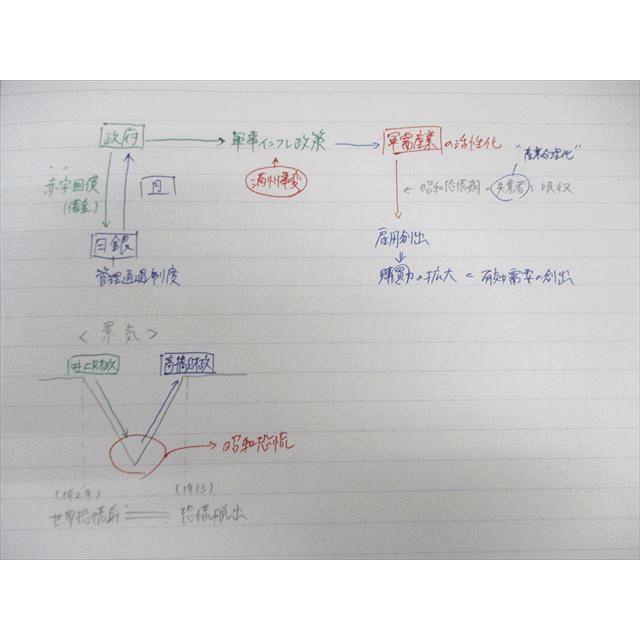 政府 → 軍事インフレ政策 → 軍需産業 の活性化
"産業合理化"
赤字国債
(借金)
円
満州事変
← 昭和恐慌期の失業者を吸収
日銀
管理通貨制度
雇用創出
購買力の拡大 = 有効需要の創出
< 景気 >
井上財政
高橋財政
→ 昭和恐慌
(1929)
(1933)
世界恐慌前
恐慌脱出